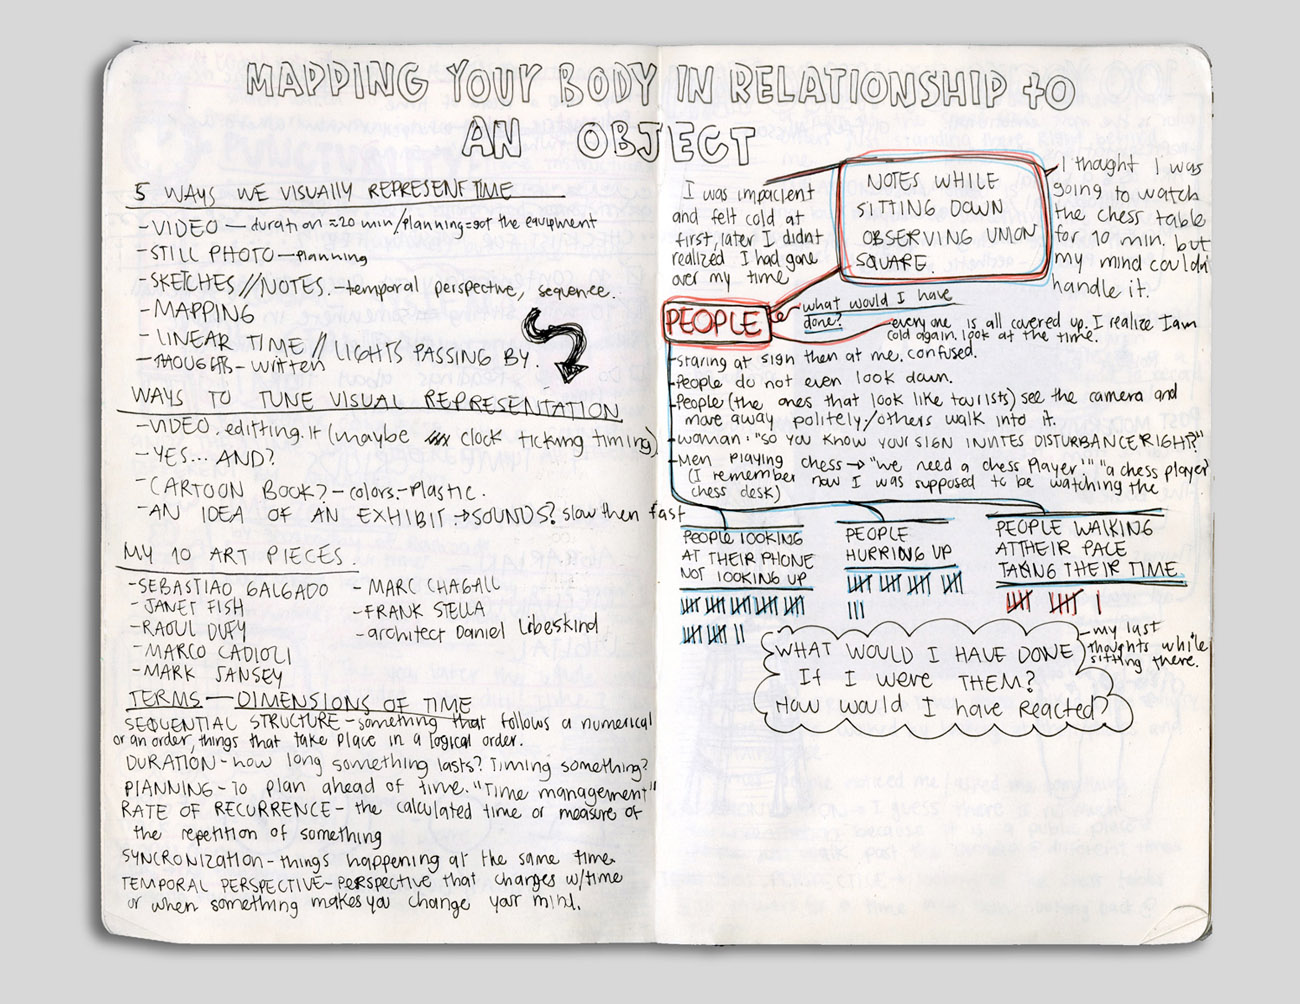 MAPPING YOUR BODY IN RELATIONSHIP tO
AN OBJECT
5 WAYS WE VISUALLY REPRESENT TIME
- VIDEO - duration ≈20 min/planning=got the equipment
- STILL PHOTO - Planning
- SKETCHES//NOTES. - temporal perspective, sequence.
- MAPPING
- LINEAR TIME // LIGHTS PASSING BY.
- THOUGHTS - written
WAYS TO TUNE VISUAL REPRESENTATION
- VIDEO. editting. it (maybe clock ticking timing)
- YES... AND?
- CARTOON BOOK? - colors - Plastic.
- AN IDEA OF AN EXHIBIT → SOUNDS? slow then fast
MY 10 ART PIECES
- SEBASTIAO GALGADO
- JANET FISH
- RAOUL DUFY
- MARCO CADIOLI
- MARK JANSEY
- MARC CHAGALL
- FRANK STELLA
- architect Daniel Libeskind
TERMS - DIMENSIONS OF TIME
SEQUENTIAL STRUCTURE - something that follows a numerical
or an order, things that take place in a logical order.
DURATION - how long something lasts? Timing something?
PLANNING - To plan ahead of time. "Time management"
RATE OF RECURRENCE - the calculated time or measure of
the repetition of something
SYNCRONIZATION - things happening at the same time.
TEMPORAL PERSPECTIVE - perspective that changes w/time
or when something makes you change your mind.
I was impacient
and felt cold at
first, later I didnt
realized I had gone
over my time
NOTES WHILE
SITTING DOWN
OBSERVING UNION
SQUARE.
I thought I was
going to watch
the chess table
for 10 min. but
my mind couldn
handle it.
PEOPLE
what would I have
done?
everyone is all covered up. I realize I am
cold again. look at the time.
- staring at sign then at me, confused.
- People do not even look down.
- People (the ones that look like tourists) see the camera and
move away politely/others walk into it.
- woman: "SO YOU KNOW YOUR SIGN INVITES DISTURBANCE RIGHT?"
- Men playing chess → "we need a chess Player!" "a chess player
(I remember now I was supposed to be watching the
chess desk)
PEOPLE LOOKING
AT THEIR PHONE
NOT LOOKING UP
PEOPLE
HURRING UP
PEOPLE WALKING
AT THEIR PACE
TAKING THEIR TIME
WHAT WOULD I HAVE DONE
If I were THEM?
How would I have Reacted?
- my last
thoughts while
sitting there.